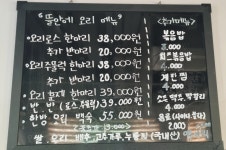 "뜰안에 오리 메뉴"
오리로스 한마리 38,000원
추가 반마리 20,000원
오리주물럭 한마리 38,000원
추가 반마리 20,000원
오리훈제 한마리 39,000원
반반 (로스,주물럭) 39,000원
한방 오리 백숙 55,000원
쌀 : 오리 배추 고추가루 (국내산)
<추가메뉴>
볶음밥
3,000
치즈볶음밥
4,000
계란찜
3,000
소주 맥주 막걸리
4,000
음료 (사이다,콜라)
2,000